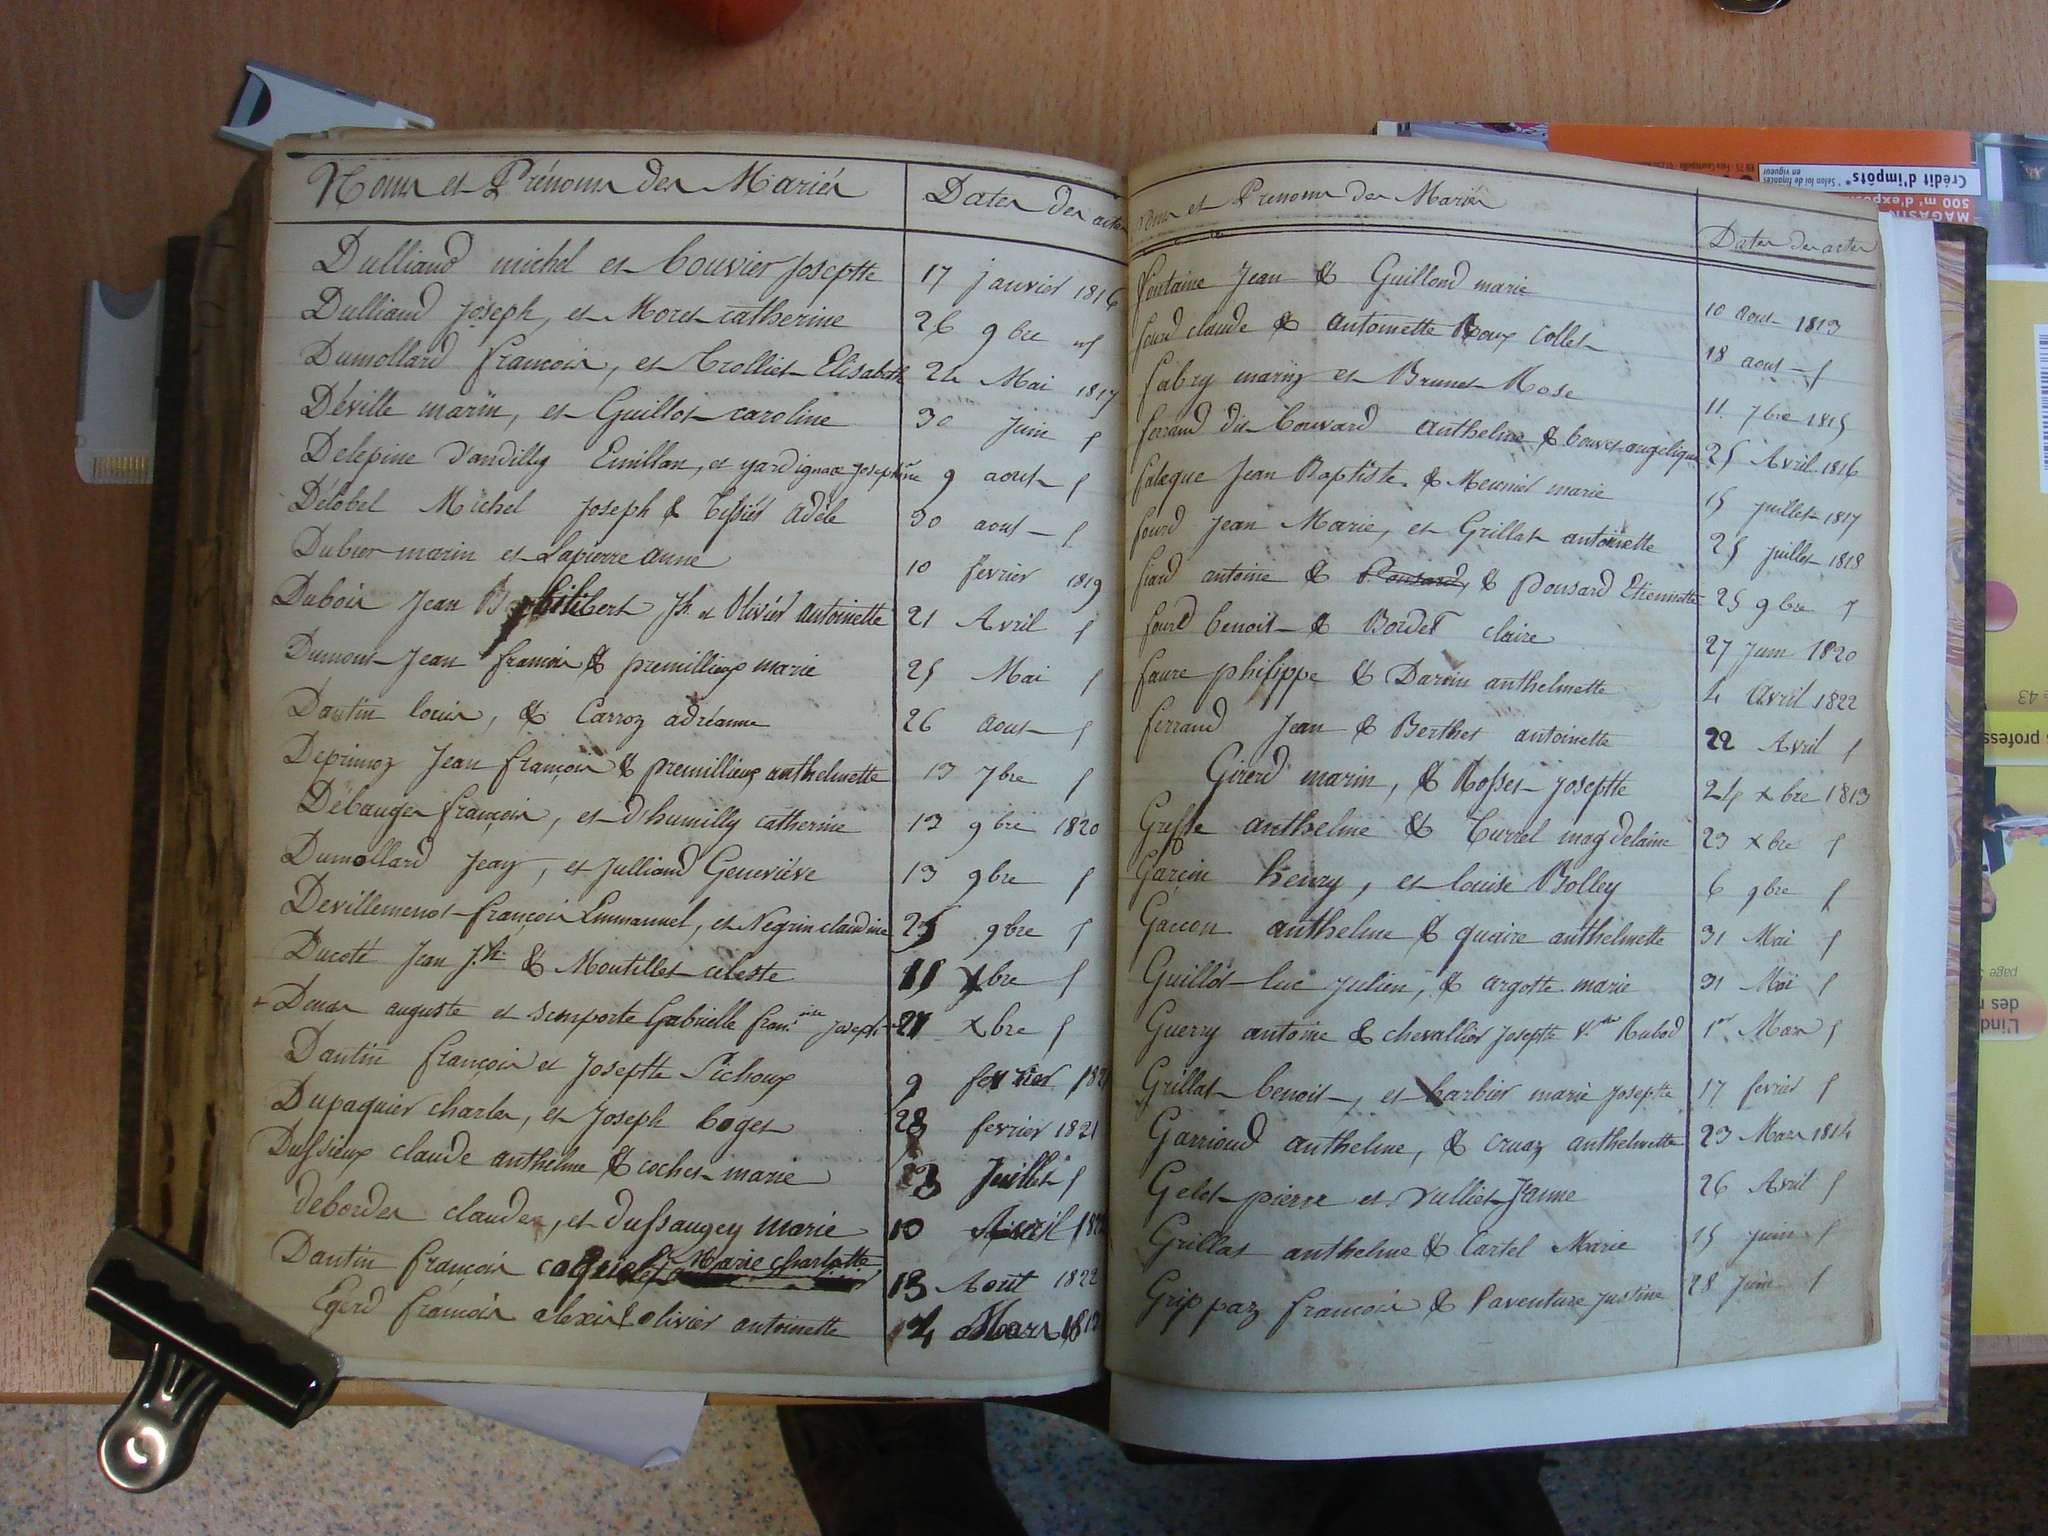 Noms et Prénoms des Mariés
Dates des actes
Dulliand michel et bouvier Josephte 17 janvier 1816
Dulliand Joseph, et Moret catherine 26 9bre
Dumollard françois, et Trolliet Elisabeth 24 Mai 1817
Déville marin, et Guillot caroline 30 Juin
Delepine d'andilly Emillan, et yardignac Josephine 9 aout
Délobel Michel Joseph & Tissiér Adéle 30 aout
Dubier marin et Lapierre anne 10 fevrier 1819
Dubois Jean B philibert Jh et Olivier Antoinette 21 Avril
Dumont Jean francois & premillieux marie 25 Mai
Dantin louis, & Carroz adréanne 26 aout
Deprimoz Jean françois & premillieux anthelmette 13 7bre
Débauge françois, et d'humilly catherine 13 9bre 1820
Dumollard Jean, et Julliand Geneviéve 13 9bre
Devillemenot françois Emmanuel, et Negrin claudine 25 9bre
Ducoté Jean J.h & Montillet celeste 11 xbre
auguste et semporte Gabrielle fran.oise Joseph 21 xbre
Dantin françois et Josephte Pichoux 9 fevrier 182
Dupaquier charles, et Joseph boget 28 fevrier 1821
Dussieux claude anthelme & cochet marie 3 Juillet
debordes claude, et dussaugey marie 10 Avril 182
Dantin françois coquet Marie charlotte 13 Aout 1822
Egerd francois alexis & olivier antoinette 4 Mars 181
Noms et Prenoms des Mariés
Dates des actes
Fontaine Jean & Guillond marie 10 aout 1813
fourd claude & antoinette Roux Collet 18 aout
fabry marin et Brunet Rose 11 7bre 1815
ferrand dit bouvard anthelme & bouvet angelique 25 Avril 1816
falcque Jean Baptiste & Meunier marie 15 Juillet 1817
fourd Jean Marie, et Grillat antoinette 25 Juillet 1818
fiard antoine & Ponsard, & ponsard Etiennette 25 9bre
fourd benoit & Bordet claire 27 Juin 1820
faure philippe & Daroin anthelmette 4 Avril 1822
ferrand Jean & Berthet antoinette 22 Avril
Girerd marin, & Rosset Josephte 24 xbre 1813
Greffe anthelme & Turrel magdelaine 23 xbre
Garcin henry, et louise Bolley 6 9bre
Gaccon anthelme & quaire anthelmette 31 Mai
Guillot luc Julien, & argotte marie 31 Mai
Guerry antoine & chevallier Josephte V.ve Rubod 1er Mars
Grillat benoit, et barbier marie Josephte 17 fevrier
Garrioud anthelme, & cruaz anthelmette 23 Mars 1814
Gelot pierre et Vulliet Janne 26 Avril
Grillat anthelme & Cartel Marie 15 Juin
Grippaz francois & l'aventure Justine 28 Juin
Crédit d'impôts* Selon loi de finances
en vigueur
MAGASIN
500 m² d'expo
43
profess
page
des
L'ind